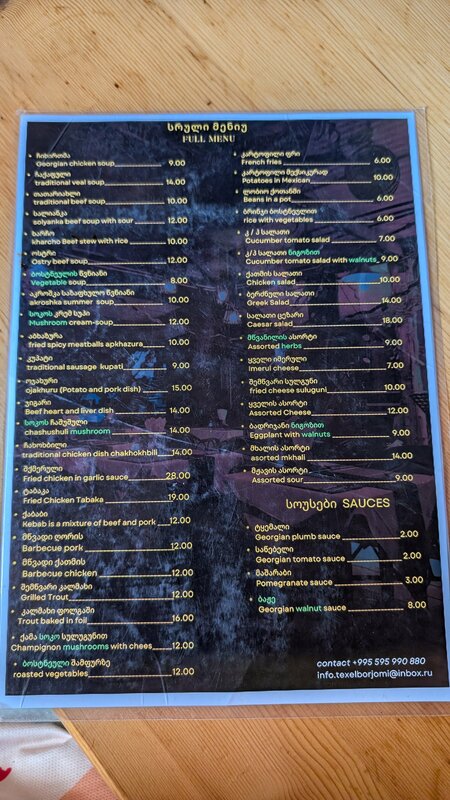 სრული მენიუ
FULL MENU
• ჩიხირთმა
Georgian chicken soup 9.00
• ჩაქაფული
traditional veal soup 14.00
• თათარიახნი
traditional beef soup 10.00
• სალიანკა
solyanka beef soup with sour 12.00
• ხარჩო
kharcho Beef stew with rice 10.00
• ოსტრი
Ostry beef soup 12.00
• ბოსტნეულის წვნიანი
Vegetable soup 8.00
• აკროშკა საზაფხულო წვნიანი
akroshka summer soup 10.00
• სოკოს კრემ სუპი
Mushroom cream-soup 12.00
• აბხაზურა
fried spicy meatballs apkhazura 10.00
• კუპატი
traditional sausage kupati 9.00
• ოჯახური
ojakhuru (Potato and pork dish) 15.00
• ჯიგარი
Beef heart and liver dish 14.00
• სოკოს ჩაშუშული
chashushuli mushroom 14.00
• ჩახოხბილი
traditional chicken dish chakhokhbili 14.00
• შქმერული
Fried chicken in garlic sauce 28.00
• ტაბაკა
Fried Chicken Tabaka 19.00
• ქაბაბი
Kebab is a mixture of beef and pork 12.00
• მწვადი ღორის
Barbecue pork 12.00
• მწვადი ქათმის
Barbecue chicken 12.00
• შემწვარი კალმახი
Grilled Trout 12.00
• კალმახი ფოლგაში
Trout baked in foil 16.00
• ქამა სოკო სულუგუნით
Champignon mushrooms with chees 12.00
• ბოსტნეული შამფურზე
roasted vegetables 12.00
• კარტოფილი ფრი
French fries 6.00
• კარტოფილი მექსიკურად
Potatoes in Mexican 10.00
• ლობიო ქოთანში
Beans in a pot 6.00
• ბრინჯი ბოსტნეულით
rice with vegetables 6.00
• კ / პ სალათი
Cucumber tomato salad 7.00
• კ/პ სალათი ნიგოზით
Cucumber tomato salad with walnuts 9.00
• ქათმის სალათი
Chicken salad 10.00
• ბერძნული სალათი
Greek Salad 14.00
• სალათი ცეზარი
Caesar salad 18.00
• მწვანილის ასორტი
Assorted herbs 9.00
• ყველი იმერული
Imerul cheese 7.00
• შემწვარი სულგუნი
fried cheese suluguni 10.00
• ყველის ასორტი
Assorted Cheese 12.00
• ბადრიჯანი ნიგოზით
Eggplant with walnuts 9.00
• მხალის ასორტი
asorted mkhali 14.00
• მჟავის ასორტი
Assorted sour 9.00
სოუსები SAUCES
• ტყემალი
Georgian plumb sauce 2.00
• საწებელი
Georgian tomato sauce 2.00
• მაშარაბი
Pomegranate sauce 3.00
• ბაჟე
Georgian walnut sauce 8.00
contact +995 595 990 880
info.texelborjomi@inbox.ru